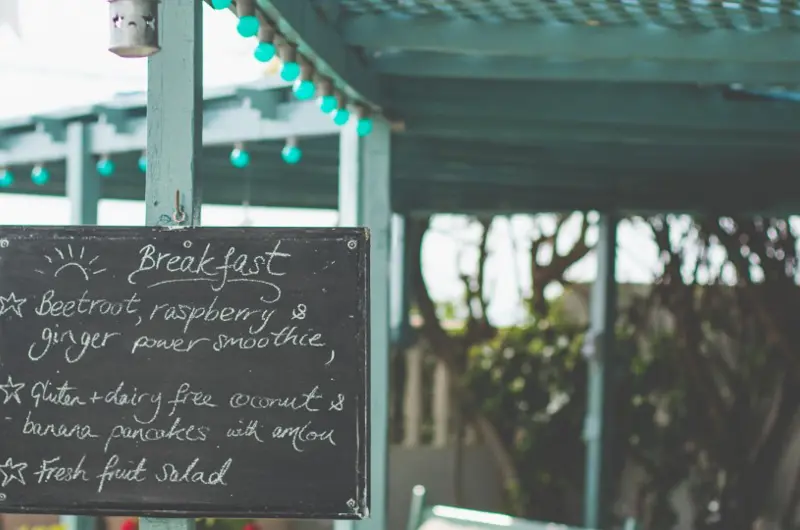 Breakfast
Beetroot, raspberry &
ginger power smoothie,
Gluten + dairy free coconut &
banana pancakes with amlou
Fresh fruit salad